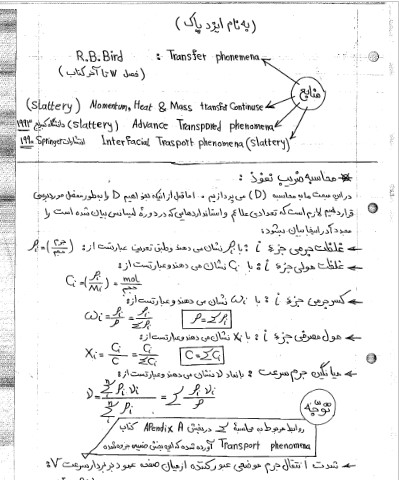 (به نام ایزد پاک)
R.B.Bird : Transfer phenomena
(فصل ۱۷ تا آخر کتاب)
منابع
(Slattery) Momentum, Heat & Mass transfer Continuse
(Slattery) Advance Transpored phenomena
Springer Interfacial Trasport phenomena (Slattery)
محاسبه ضریب نفوذ :
در این مبحث به محاسبه (D) می پردازیم . اما قبل از اینکه بخواهیم D را بطور مفصل مورد بررسی
قرار دهیم لازم است که تعدادی علائم و استانداردهایی که در دورهٔ لیسانس بیان شده است را
مجدداً در اینجا بیان میشود:
← غلظت جرمی جزء i : با ρi نشان می دهند و طبق تعریف عبارتست از: ρi = (جرم/حجم)
← غلظت مولی جزء i : با Ci نشان می دهند و عبارتست از:
Ci = (ρi/Mi) = mol/حجم
← کسر جرمی جزء i : با ωi نشان می دهند و عبارتست از:
ωi = ρi/ρ = ρi/Σρi   ρ = Σρi
← مول مصرفی جزء i : با Xi نشان می دهند و عبارتست از:
Xi = Ci/C = Ci/ΣCi   C = ΣCi
← میانگین جرم سرعت : با نماد v نشان می دهند و عبارتست از:
v = Σρi vi / Σρi = Σ ρi vi / ρ
توجه
روابط مربوط به محاسبهٔ Σ در بخش Apendix A کتاب
Transport phenomena آورده شده که این بخش ضمیمه جزوه شده
← شدت انتقال جرم موضعی عبور کننده از میان صفحه عمود بر بردار سرعت v :